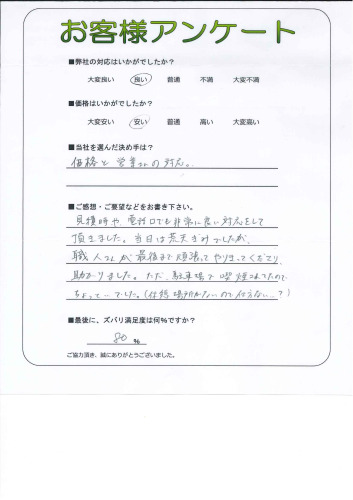 お客様アンケート
■弊社の対応はいかがでしたか?
大変良い 良い 普通 不満 大変不満
■価格はいかがでしたか?
大変安い 安い 普通 高い 大変高い
■当社を選んだ決め手は?
価格と営業さんの対応。
■ご感想・ご要望などをお書き下さい。
見積時や、電話口でも非常に良い対応をして
頂きました。当日は荒天ぎみでしたが、
職人さんが最後まで頑張ってやりきってくださり、
助かりました。ただ、駐車場で喫煙されてたので
ちょっと…でした。(休憩場所がないので仕方ない…?)
■最後に、ズバリ満足度は何%ですか?
80 %
ご協力頂き、誠にありがとうございました。